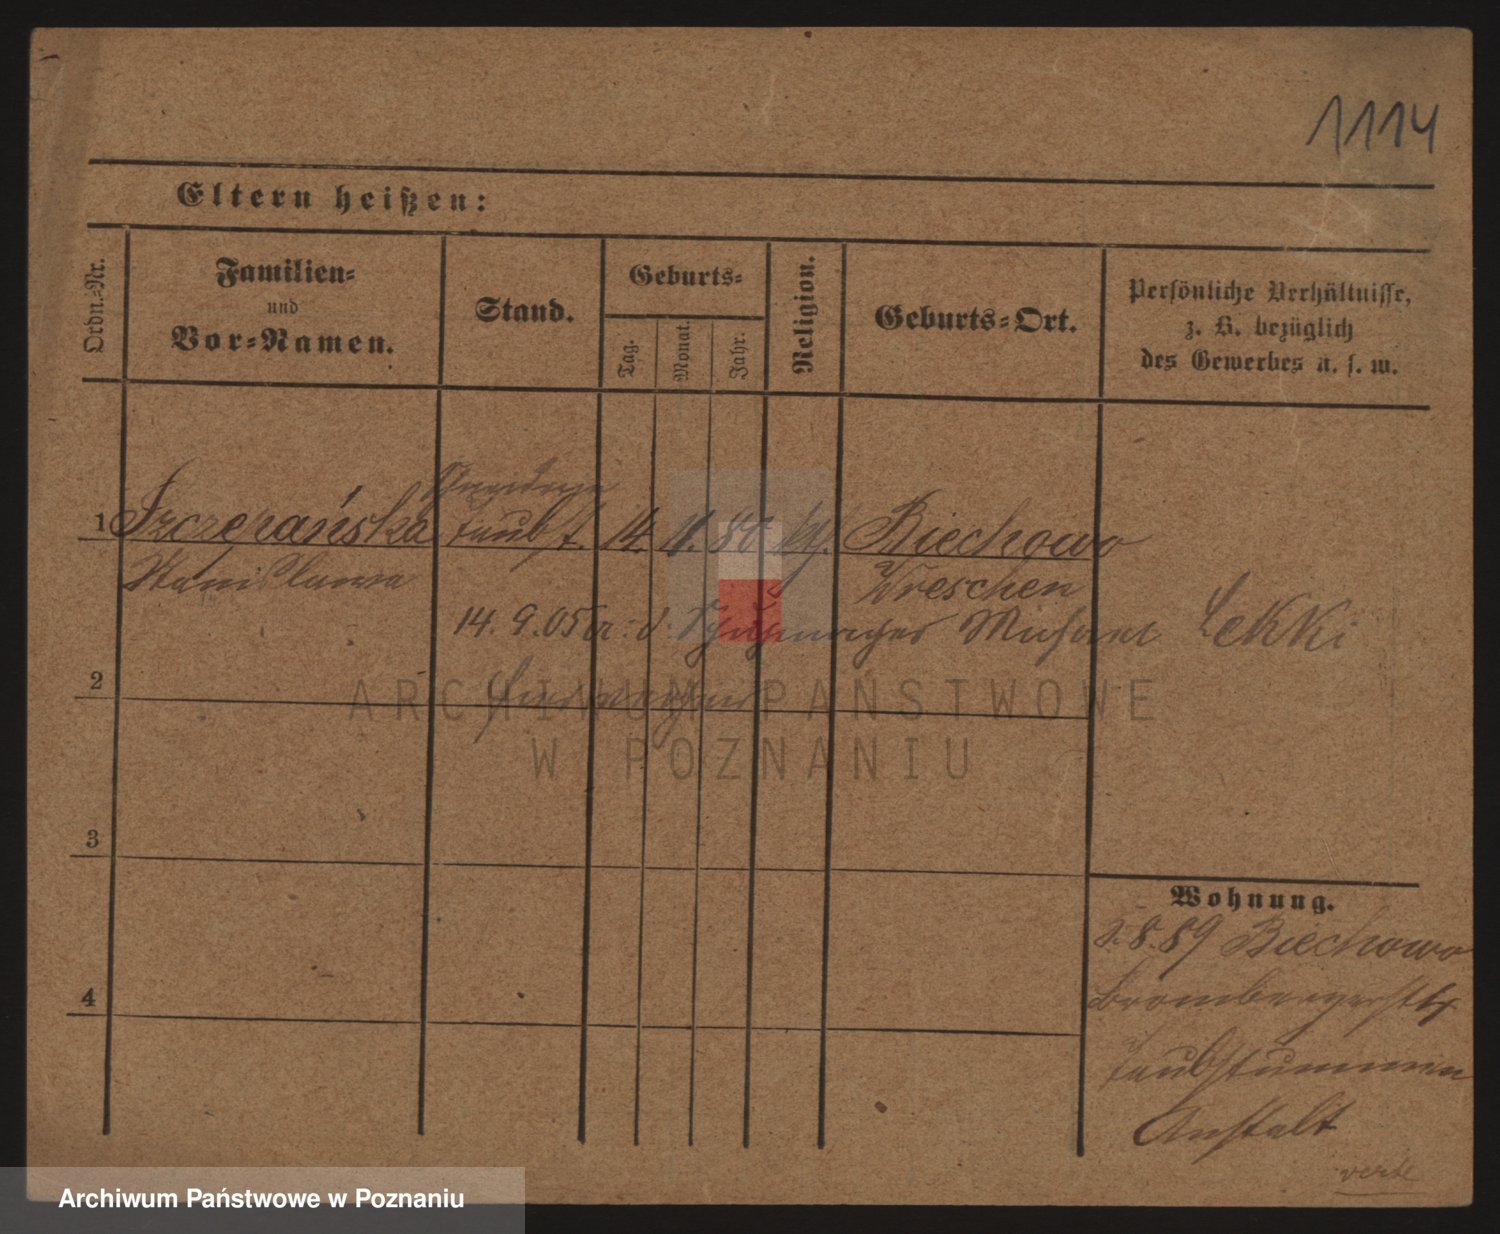 1114
Eltern heißen:
Ordn.=Nr.
Familien=
und
Vor=Namen.
Stand.
Geburts=
Tag.
Monat.
Jahr.
Religion.
Geburts=Ort.
Persönliche Verhältnisse,
z. B. bezüglich
des Gewerbes u. s. w.
1 Szczepańska taubst. 14. 11. 80 Biechowo
Stanislawa Wreschen
14. 9. 05 d. Schuhmacher Michael Lekki
2
ARCHIWUM PAŃSTWOWE
W POZNANIU
3
Wohnung.
2.8.89 Biechowo
4
Brombergerstr
Taubstummen
Anstalt
verte
Archiwum Państwowe w Poznaniu